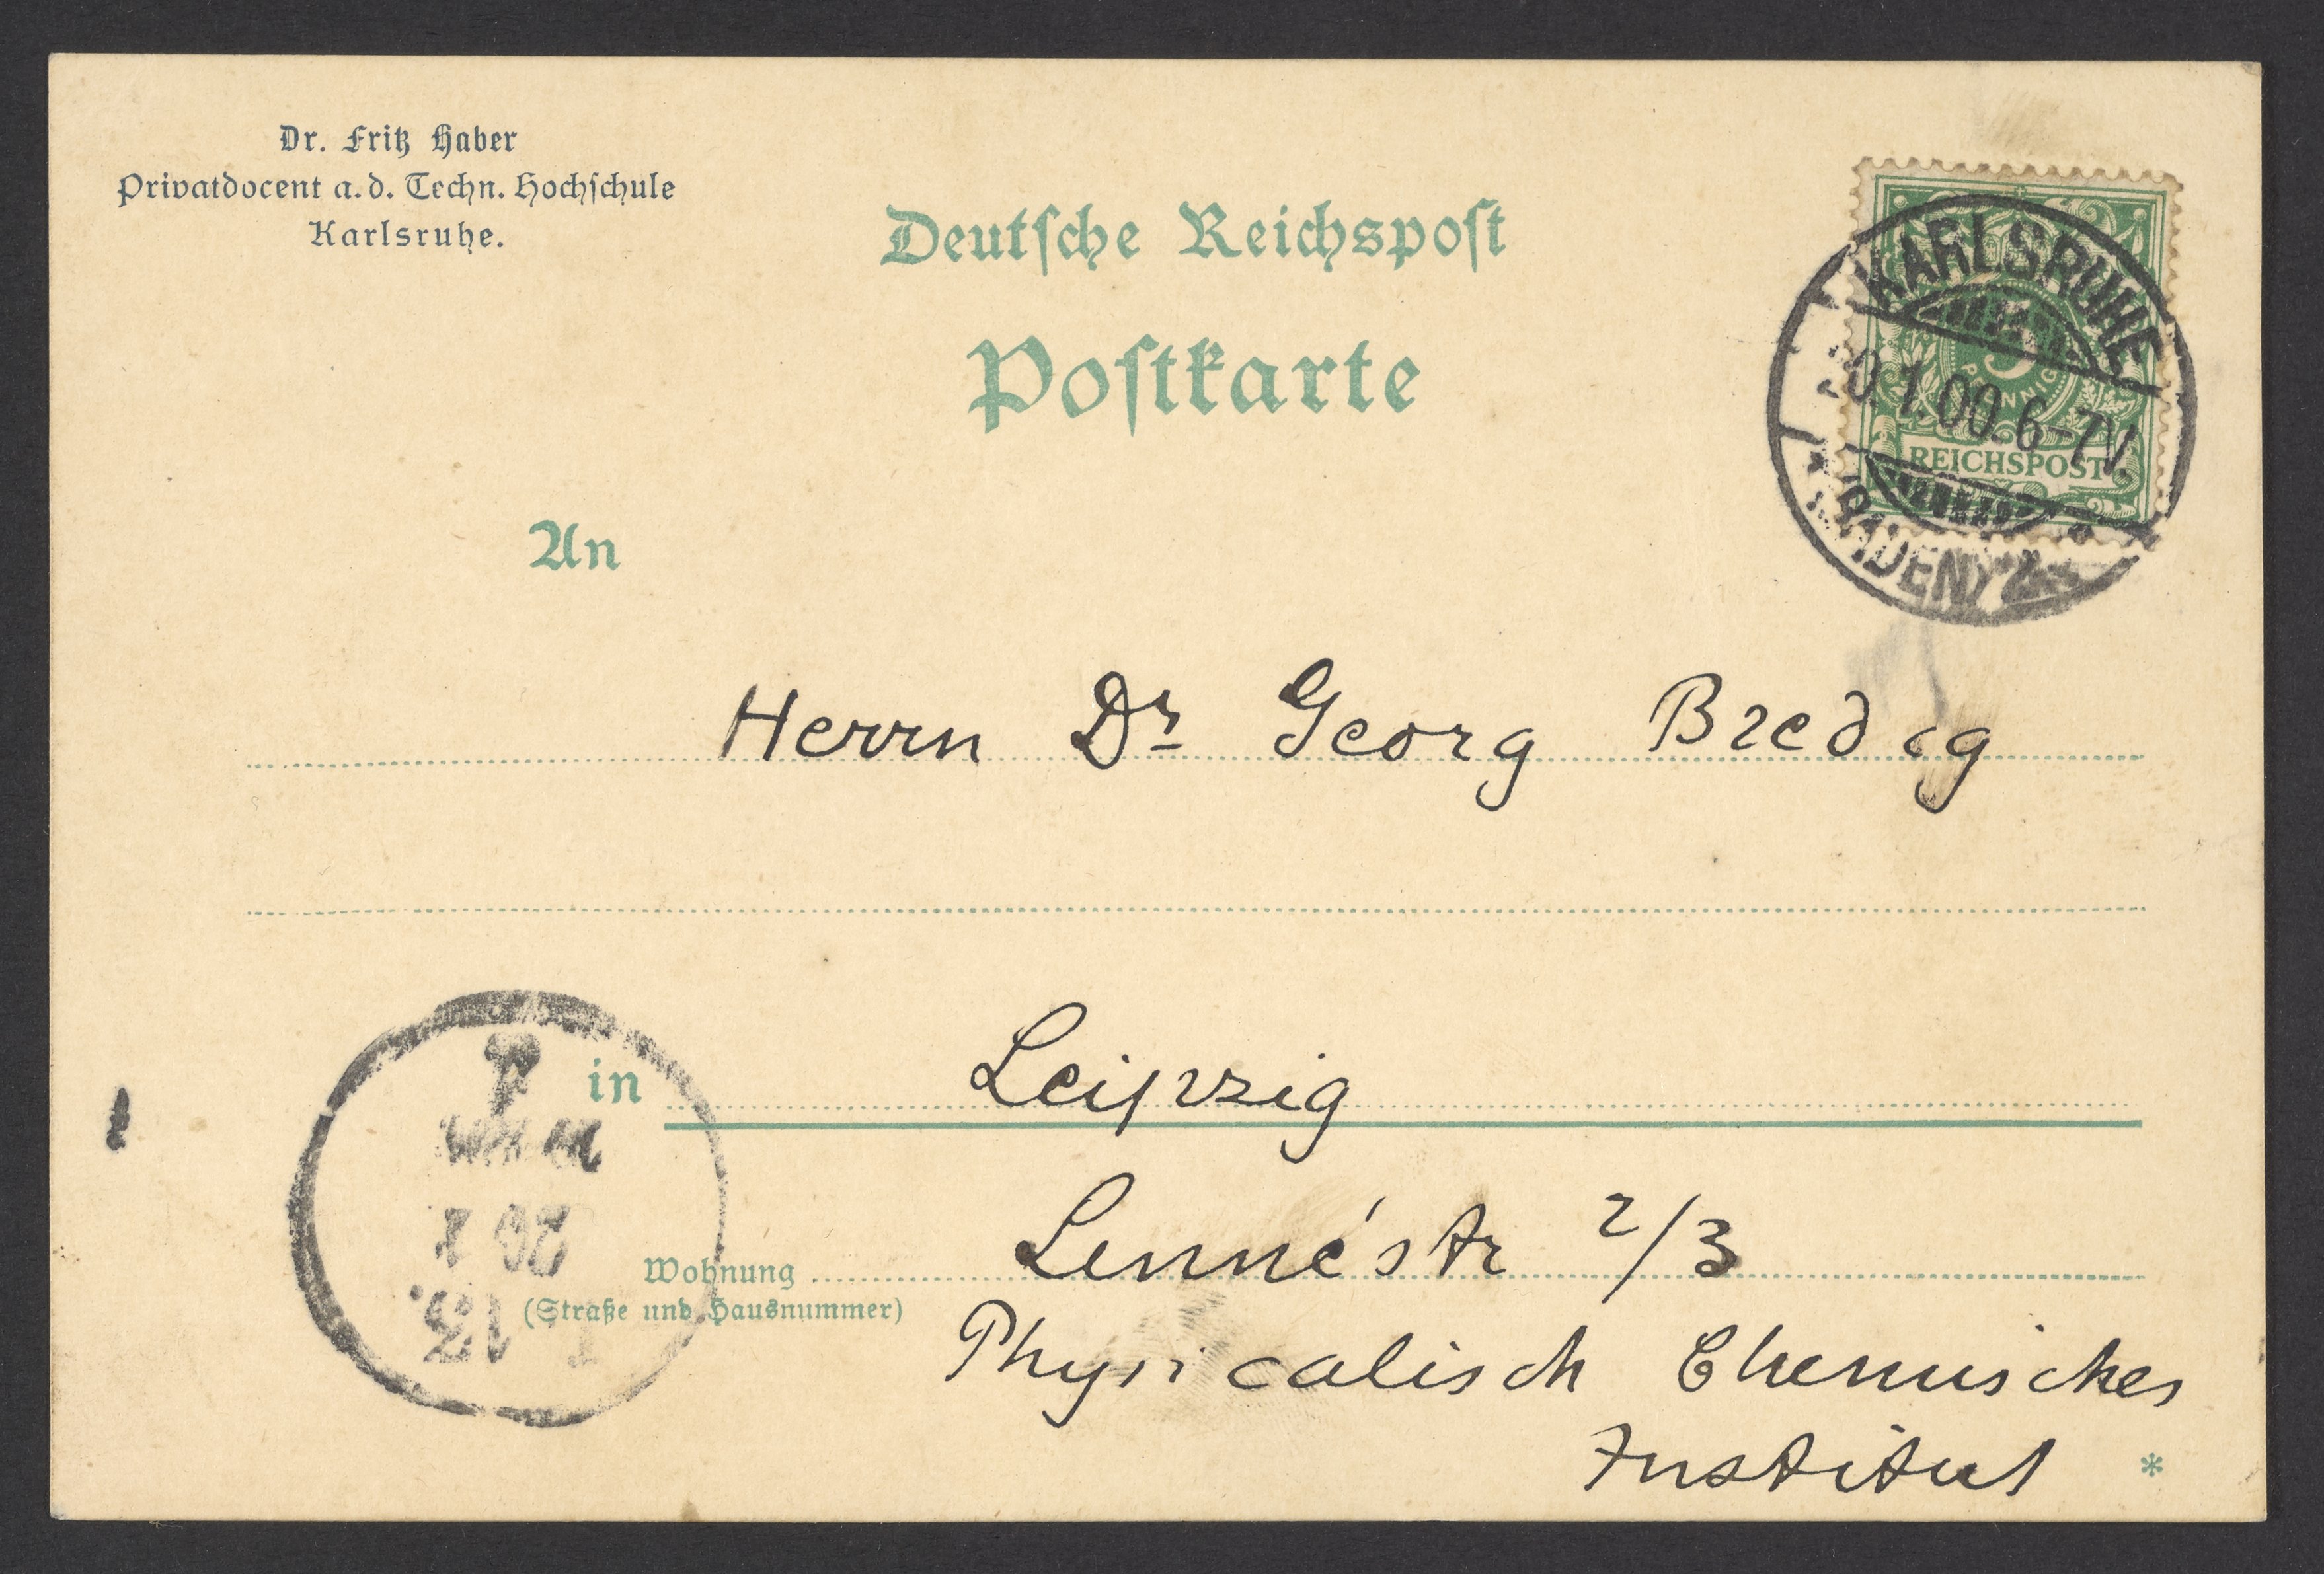 Dr. Fritz Haber
Privatdocent a. d. Techn. Hochschule
Karlsruhe.
Deutsche Reichspost
Postkarte
KARLSRUHE
5
PFENNIG
20.1.00.6-7V.
REICHSPOST
(BADEN) 2
An
Herrn Dr Georg Bredig
in Leipzig
Wohnung Lennéstr 2/3
(Straße und Hausnummer)
Physicalisch Chemisches
Institut *